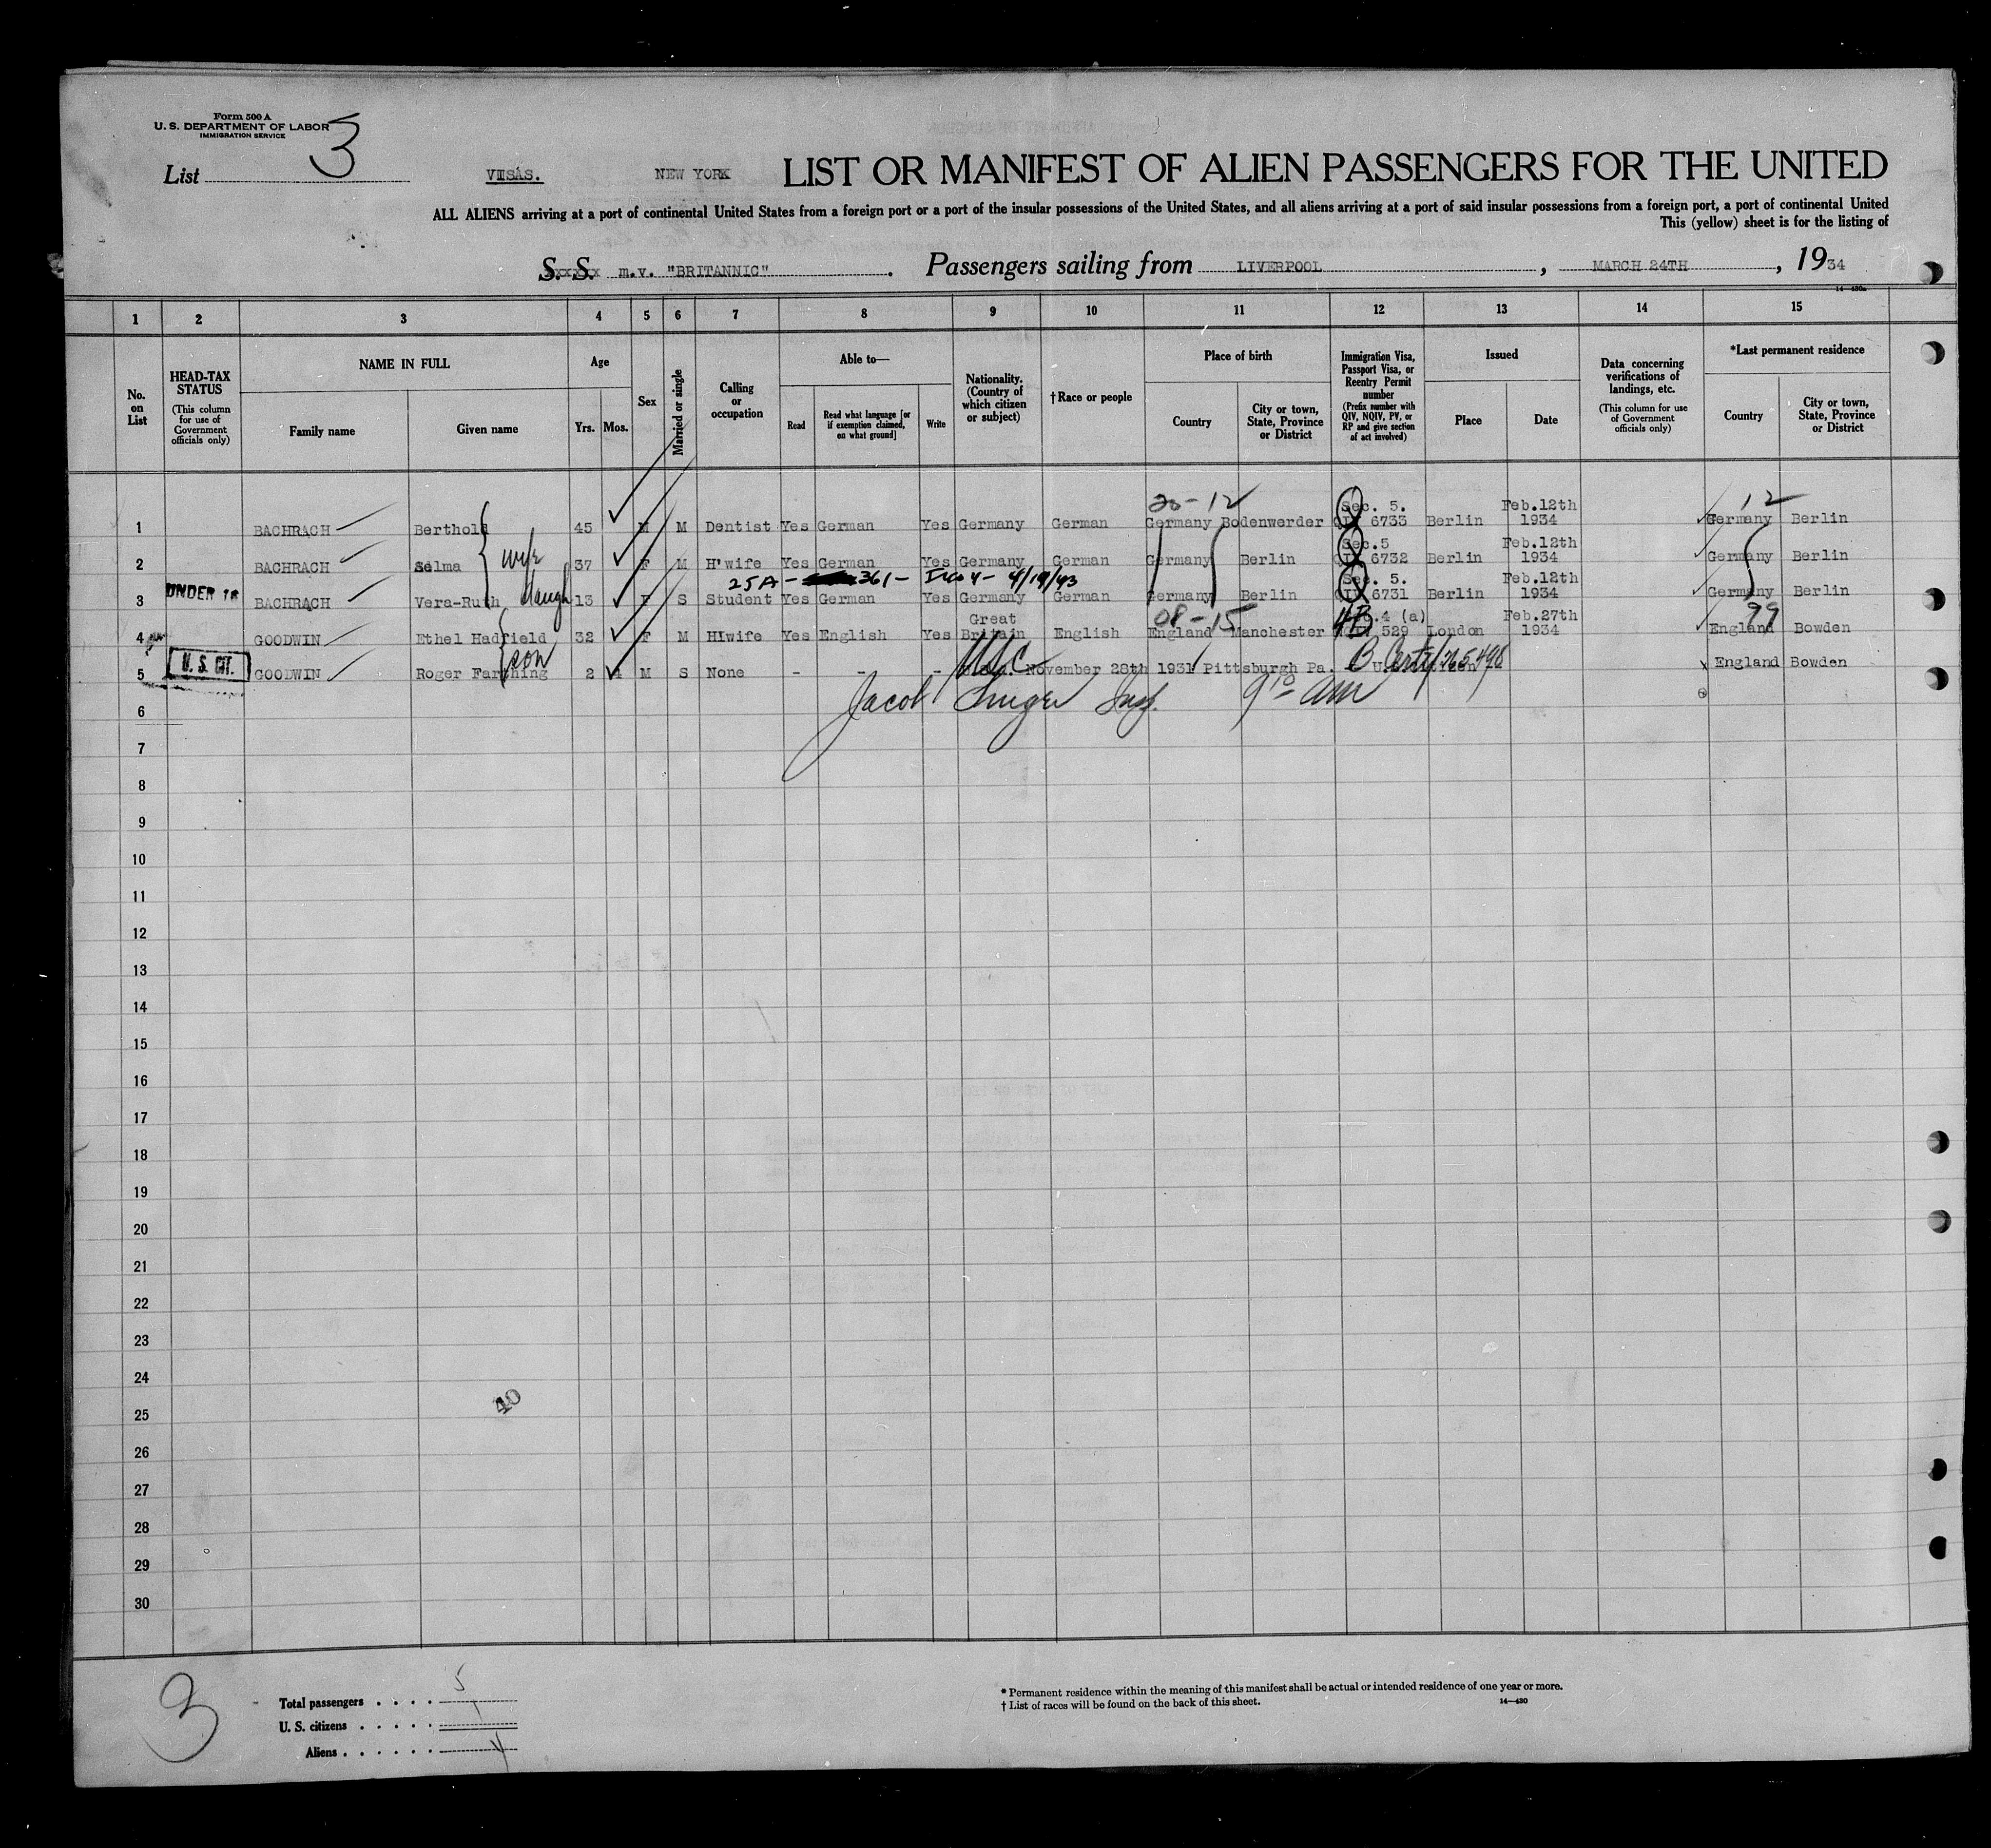 Form 500 A
U. S. DEPARTMENT OF LABOR
IMMIGRATION SERVICE
3
List
VISAS.
NEW YORK
LIST OR MANIFEST OF ALIEN PASSENGERS FOR THE UNITED
ALL ALIENS arriving at a port of continental United States from a foreign port or a port of the insular possessions of the United States, and all aliens arriving at a port of said insular possessions from a foreign port, a port of continental United
This (yellow) sheet is for the listing of
S. S. m.v. "BRITANNIC" . Passengers sailing from LIVERPOOL , MARCH 24TH , 1934
14—430a
1 2 3 4 5 6 7 8 9 10 11 12 13 14 15
No. on List
HEAD-TAX STATUS
(This column for use of Government officials only)
NAME IN FULL
Family name
Given name
Age
Yrs. Mos.
Sex
Married or single
Calling or occupation
Able to—
Read
Read what language [or if exemption claimed, on what ground]
Write
Nationality. (Country of which citizen or subject)
† Race or people
Place of birth
Country
City or town, State, Province or District
Immigration Visa, Passport Visa, or Reentry Permit number
(Prefix number with QIV, NQIV, PV, or RP and give section of act involved)
Issued
Place
Date
Data concerning verifications of landings, etc.
(This column for use of Government officials only)
*Last permanent residence
Country
City or town, State, Province or District
20-12 Sec. 5. Feb.12th 12
1 BACHRACH Berthold 45 M M Dentist Yes German Yes Germany German Germany Bodenwerder QIV 6733 Berlin 1934 Germany Berlin
Sec.5 Feb.12th
2 BACHRACH Selma wife 37 F M H'wife Yes German Yes Germany German Germany Berlin 6732 Berlin 1934 Germany Berlin
25A- 361- 4/19/43 Sec. 5. Feb.12th
UNDER 16
3 BACHRACH Vera-Ruth daugh 13 F S Student Yes German Yes Germany German Germany Berlin QIV 6731 Berlin 1934 Germany Berlin
Great 08-15 4 (a) Feb.27th 99
4 GOODWIN Ethel Hadfield 32 F M H'wife Yes English Yes Britain English England Manchester 529 London 1934 England Bowden
U. S. CIT.
son
5 GOODWIN Roger Farthing 2 4 M S None - - - USC November 28th 1931 Pittsburgh Pa. England Bowden
Jacob Insp. 9 10 AM
6
7
8
9
10
11
12
13
14
15
16
17
18
19
20
21
22
23
24
40
25
26
27
28
29
30
3
Total passengers . . . . 5
U. S. citizens . . . . . 1
Aliens . . . . . . 4
* Permanent residence within the meaning of this manifest shall be actual or intended residence of one year or more.
† List of races will be found on the back of this sheet.
14—430